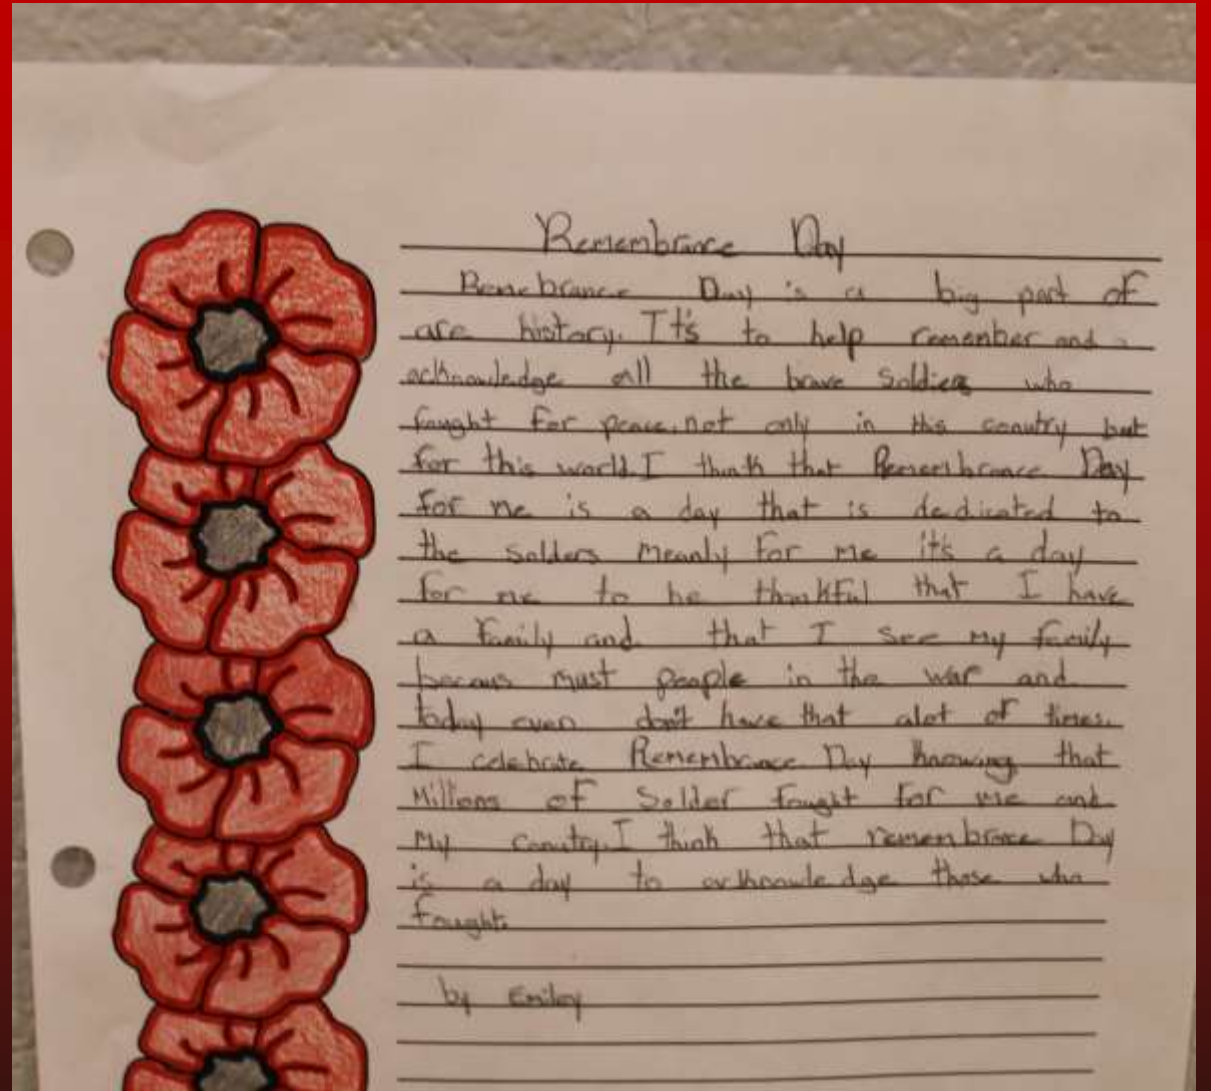 Remembrance Day
Remebrance Day is a big part of
are history. It's to help remember and
acknowledge all the brave Soldiers who
fought for peace, not only in this conutry but
for this world. I think that Remembrance Day
for me is a day that is dedicated to
the solders meanly for me it's a day
for me to be thankful that I have
a family and that I see my family
becaus must people in the war and
today even don't have that alot of times.
I celebrate Remembrance Day knowing that
Millions of Solder fought for me and
my conutry. I think that remembrance Day
is a day to acknowledge those who
fought.
by Emiley